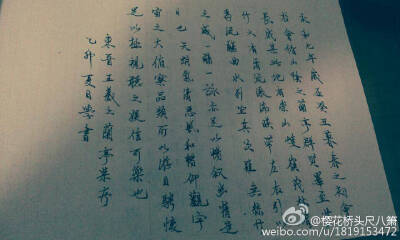 永和九年歲在癸丑暮春之初會
於會稽山陰之蘭亭群賢畢至少
長咸集此地有崇山峻嶺茂林
竹又有清流激湍映帶左右引以
為流觴曲水列坐其次雖無絲竹
之盛一觴一詠亦足以暢敘幽情是
日也天朗氣清惠風和暢仰觀宇
宙之大俯察品類所以遊目騁懷
足以極視聽之娛信可樂也
東晉王羲之蘭亭集序
乙卯夏日學書
@樱花桥头尺八箫
weibo.com/u/1819153472